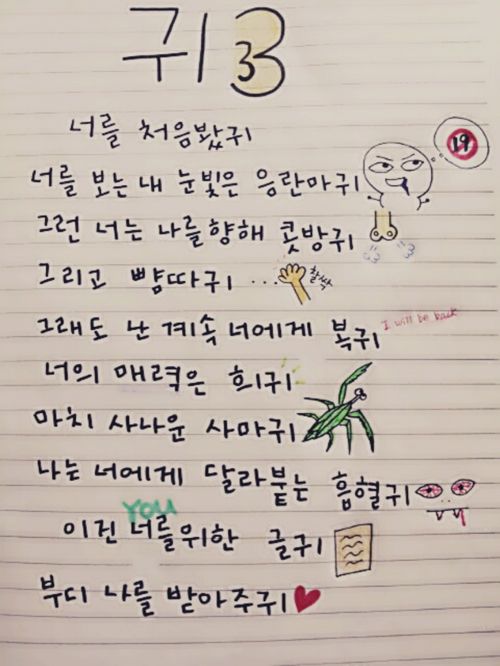 귀33
너를 처음봤귀
너를 보는 내 눈빛은 응란마귀
19
그런 너는 나를향해 콧방귀
그리고 뺨따귀 ... 찰싹
그래도 난 계속 너에게 복귀 I will be back
너의 매력은 희귀
마치 사나운 사마귀
나는 너에게 달라붙는 흡혈귀
YOU
이건 너를위한 글귀
부디 나를 받아주귀